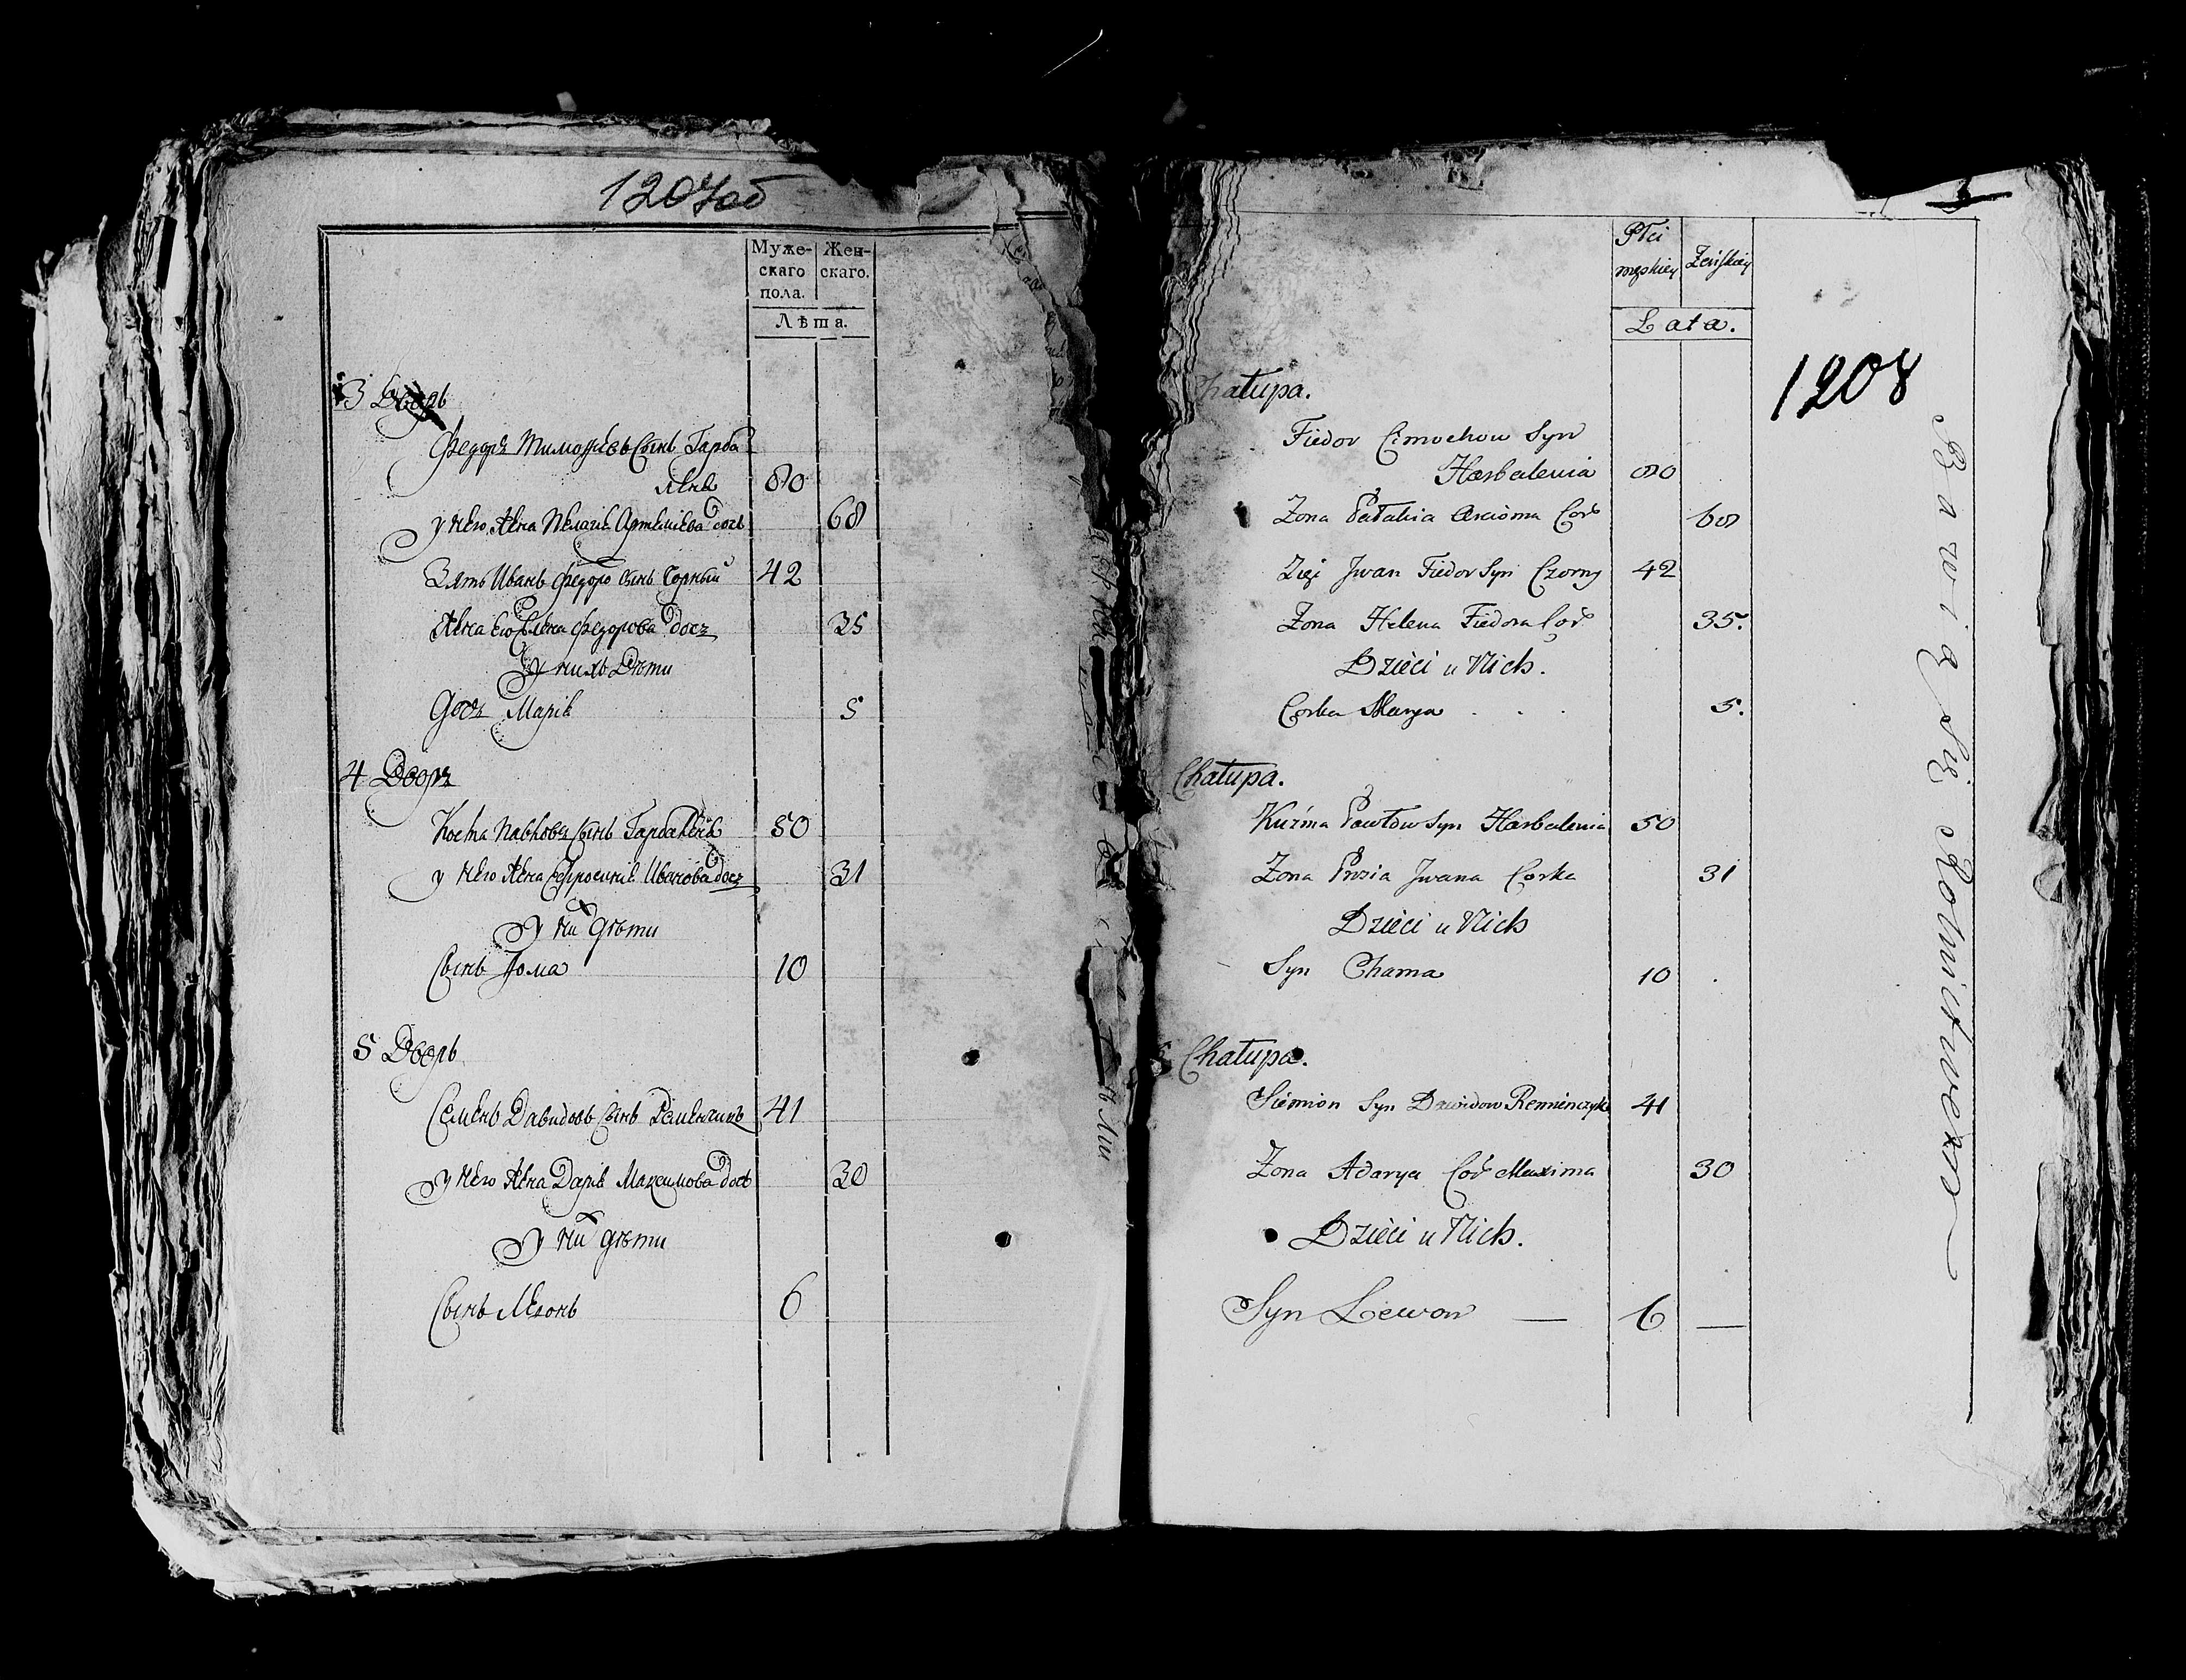 1207об
Муже-
скаго
пола.
Жен-
скаго.
Лѣта.
3 Дворъ
Федоръ Тимофѣевъ Сынъ Гарба
лѣня 80
у него Жена Пелагѣя Артемиева дочь 68
Зять Иванъ Федоро Сынъ Чорный 42
Жена его Елена Федорова дочъ 35
У нихъ Дѣти
Дочъ Марія 5
4 Дворъ
Павловъ Сынъ Гарбалѣня 50
у него Жена Иванова дочъ 31
У них дѣти
Сынъ Хома 10
5 Дворъ
Семенъ Давидовъ Сынъ Ременчикъ 41
у него Жена Дарья Максимова дочь 30
У них дѣти
Сынъ Леонъ 6
3
Płci
męskiey
Żeńskiey
Lata.
1208
Chałupa.
Fiedor Cimochow Syn
Harbalenia 80
Zona Pałahia Arcioma Cor 68
Zięć Jwan Fiedor Syn Czorny 42
Zona Helena Fiedora Cor 35.
Dzieci u Nich.
Corka Marya 5.
Chałupa.
Kuźma Pawłow Syn Harbalenia 50
Zona Prosia Jwana Corka 31
Dzieci u Nich
Syn Chama 10
5 Chałupa.
Siemion Syn Dawidow Remienczyk 41
Zona Adarya Cor Maxima 30
Dzieci u Nich.
Syn Lewon — 6 —
Bawią Się Rolnictwem